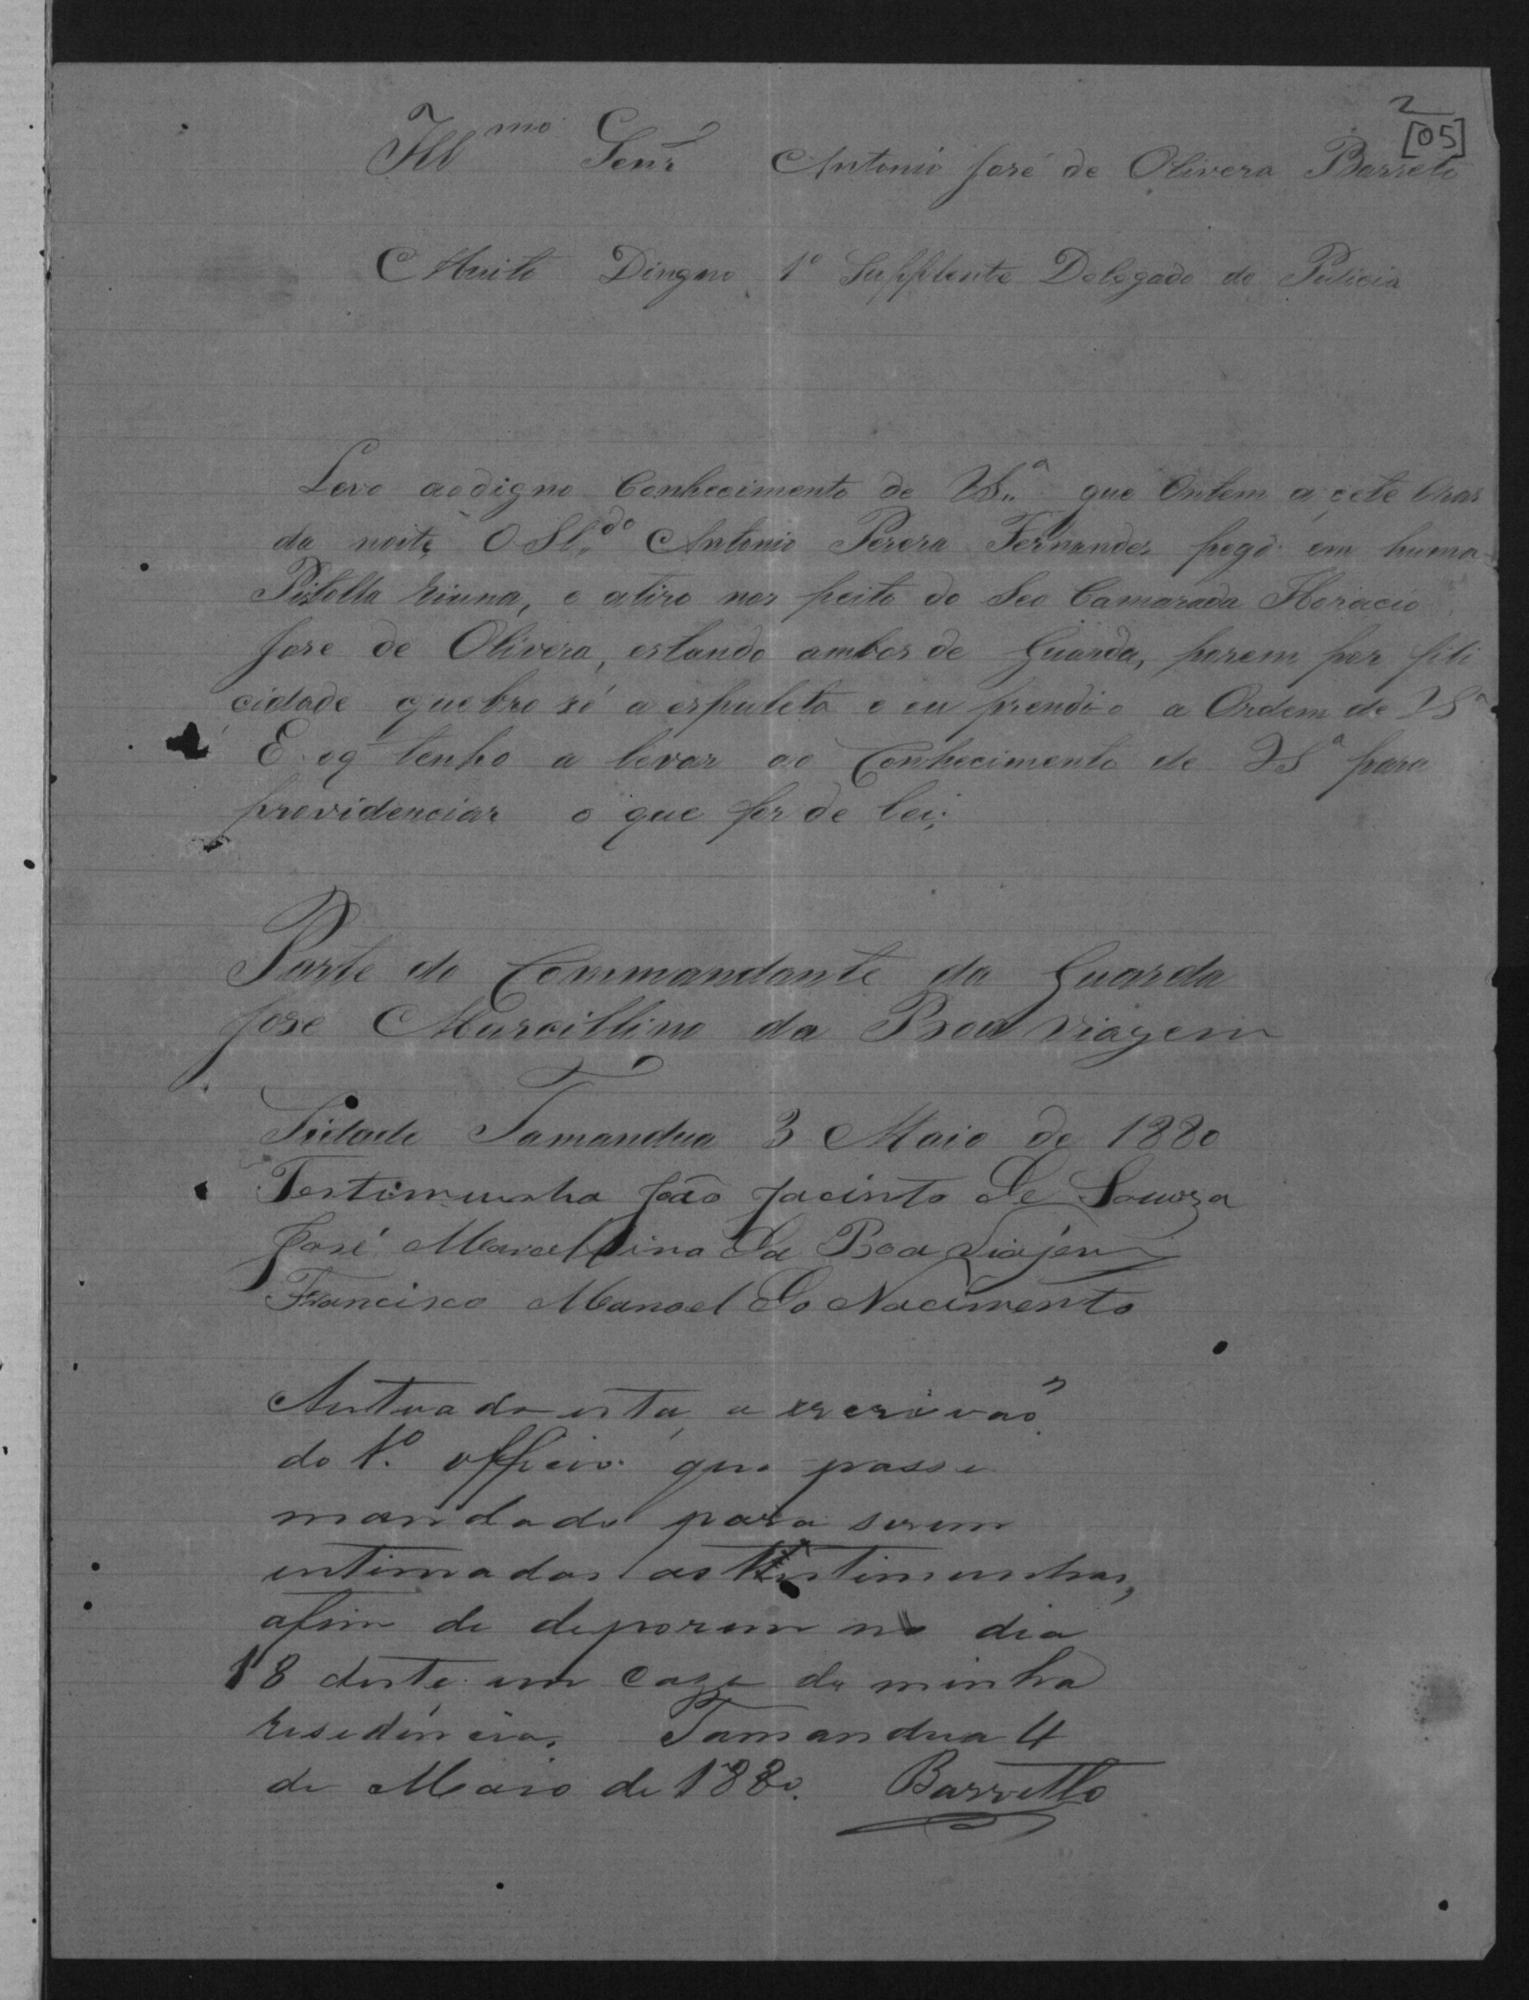 2
[05]
Illmo Senr. Antonio José de Olivera Barreto
Muito Dingno 1º Supplente Delegado de Pulicia
Levo aodigno Conhecimento de VSª que Ontem a cete Oras
da noite O Sldº Antonio Perera Fernandes pegô em huma
Pistolla Riuna, e atiro nos peito do Seo Camarada Horacio
Jose de Olivera, estando ambos de Guarda, porem por fili
cidade quebro só a espuleta e eu prendi-o a Ordem de VSª
E oq tenho a levar ao Conhecimento de VSª para
previdenciar o que for de lei;
Parte do Commandante da Guarda
Jose Marcillino da Boa Viagem
Sidade Tamandua 3 Maio de 1880
Testimunha João Jacinto De Souza
José Marcellino Da Boa Viajem
Francisco Manoel Do Nacimento
Autuada esta, o escrivão
do 1º. officio que passe
mandado para serem
intimadas as testimunhas,
afim de deporem no dia
18 deste em caza de minha
residencia. Tamandua 4
de Maio de 1880. Barretto